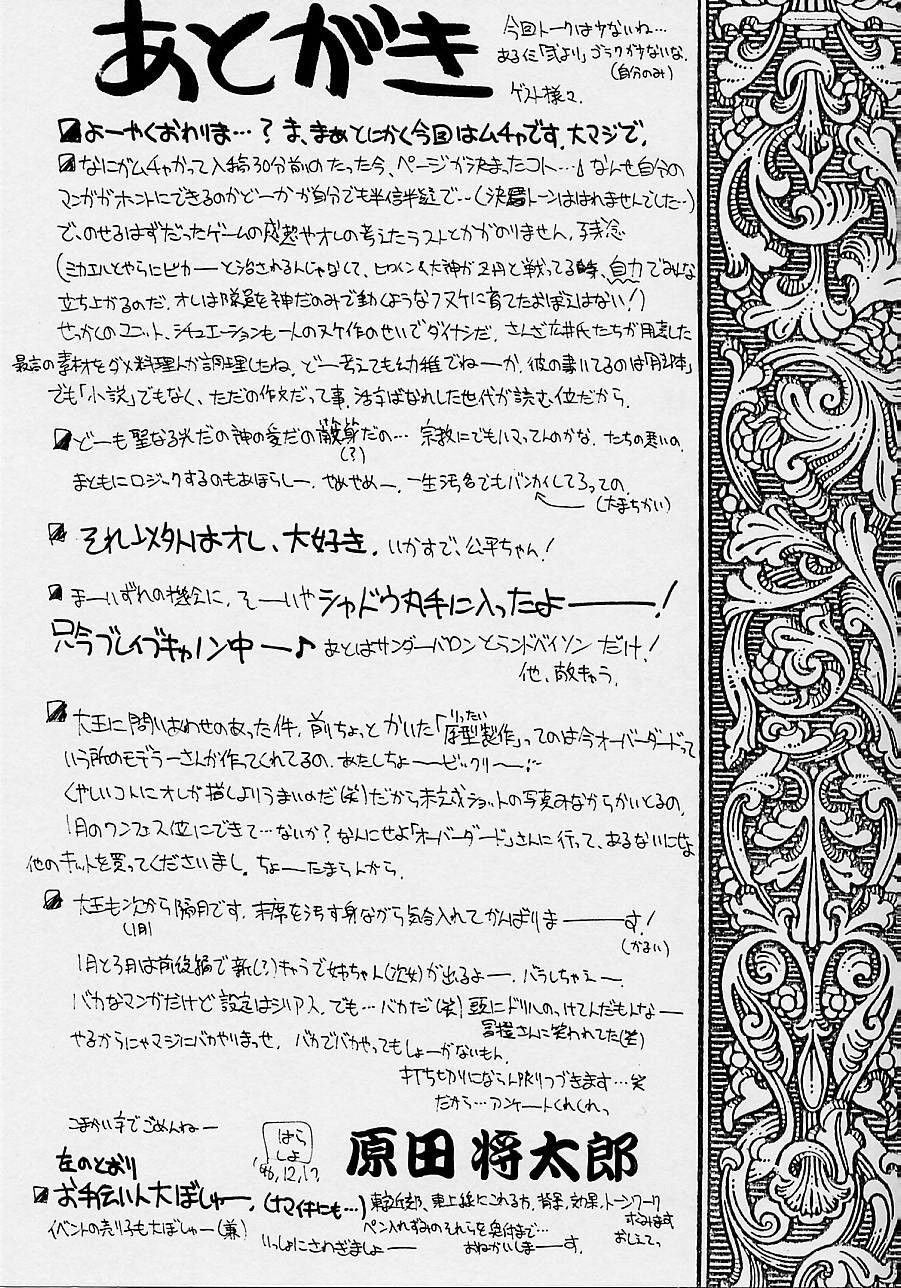 あとがき
今回トークは少ないね…
あるイミ「弐より」ゴラクが少ないな.
(自分のみ)
ゲスト様々.
よーやくおわりま…？ま、まぁとにかく今回はムチャです.大マジで.
なにがムチャかって入稿30分前のたった今、ページが決まったコト…。なんせ自分の
マンガがホントにできるのかどーかが自分でも半信半疑で…(決局トーンははれませんでした…)
で、のせるはずだったゲームの感想やオレの考えたラストとかがのりません.残念
(ミカエルとやらにピカーーと治されるんじゃなくて、ヒロイン&大神が2円と戦ってる時、自力でみんな
立ち上がるのだ.オレは隊員を神だのみで動くようなフヌケに育てたおぼえはない！)
せっかくのユニット、シチュエーションも一人のヌケ作のせいでダイナシだ.さんざ広井氏たちが用意した
最高の素材をダメ料理人が調理したね.どー考えても幼稚でねーか.彼の書いてるのは「脚本」
でも「小説」でもなく、ただの作文だって事.活字ばなれした世代が読む位だから.
どーも聖なる光だの神の愛だの
(?)
だの… 宗教にでもハマってんのかな.たちの悪いの.
まともにロジックするのもあほらしー.やめやめー.一生汚名でもバンカイしてろっての.
(大まちがい)
それ以外はオレ、大好き.いかすで、公平ちゃん！
まーいずれの機会に、そーいやシャドウ丸手に入ったよーーー！
只今ブレイブキャノン中ー♪ あとはサンダーバロンとランドバイソンだけ！
他、敵キャラ.
大王に問いあわせのあった件.前ちょっとかいた「原型製作」ってのは今オーバーダードって
りったい
いう所のモデラーさんが作ってくれてるの.あたしちょーービックリー…
くやしいコトにオレが描くよりうまいのだ(笑)だから未完成ショットの写真みながらかいとるの.
1月のワンフェス位にできて…ないか？なんにせよ「オーバーダード」さんに行って、あるないにせよ
他のキットを買ってくださいまし.ちょーたまらんから.
大王も次から隔月です.末席を汚す身ながら気合入れてがんばりまーーーす！
(1月)
(かるい)
1月と3月は前後編で新(?)キャラで姉ちゃん(次女)が出るよー.バラしちゃえー
バカなマンガだけど設定はシリアス.でも…バカだ(笑)頭にドリルのっけてんだもんなー
さんに笑われてた(笑)
やるからにゃマジにバカやりまっせ.バカでバカやってもしょーがないもん.
打ち切りにならん限りつづきます…笑
だから…アンケートくれくれっ
こまかい字でごめんねー
はら
しょ
'96,12,17
原田将太郎
左のとおり
お手伝い人大ぼしゅー.(ナマイキにも…)東京近郊、東上線にこれる方,背景,効果,トーンワーク
ペン入れずみのそれらを受付まで…
するます
おしえてっ
イベントの売り子も大ぼしゅー(兼) いっしょにさわぎましょー おねがいしまーす.